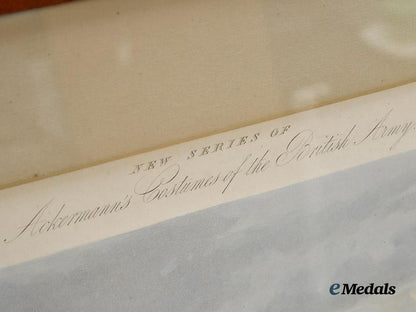 NEW SERIES OF
Ackermann's Costumes of the British Army
eMedals